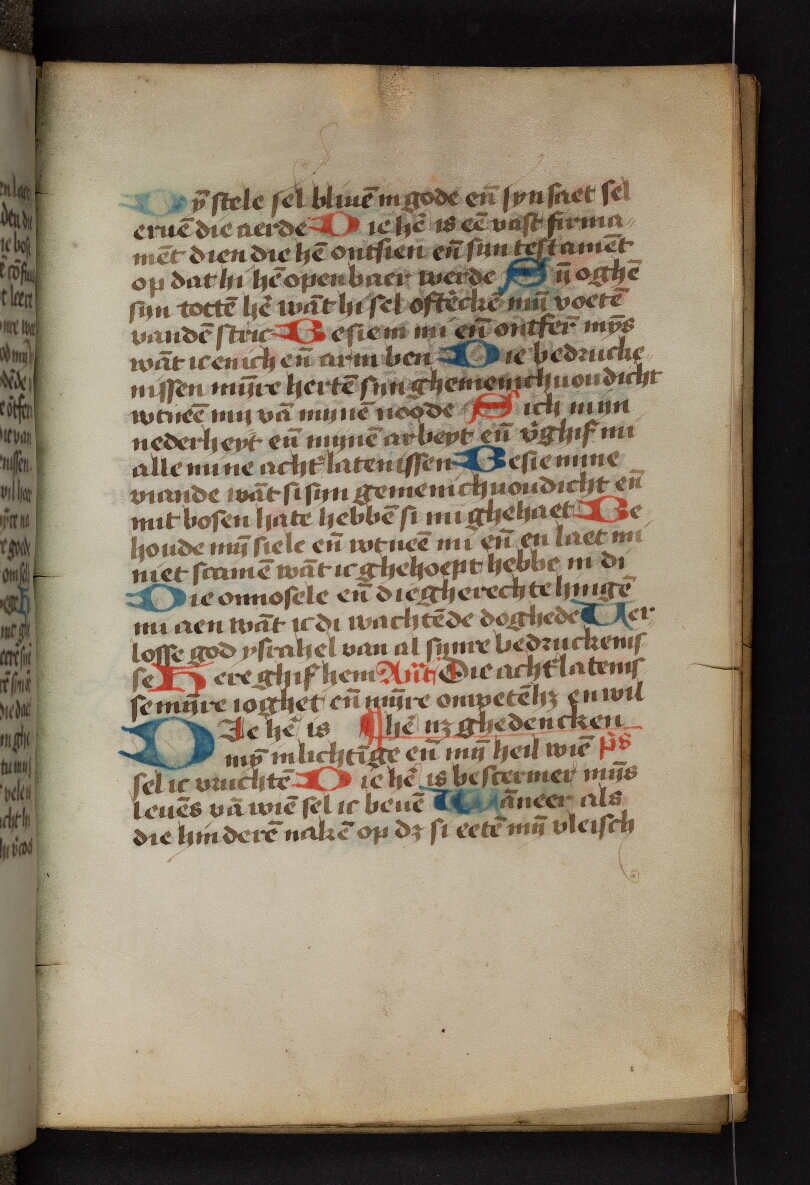 Dy̅ siele sel bliue̅ in gode en̅ syn saet sel
erue̅ die aerde Die he̅ is ee̅ vast firma
me̅t dien die he̅ ontsien en̅ sijn testame̅t
op dat hi he̅ openbaer werde Mij̅ oghe̅
sijn totte̅ he̅ wa̅t hi sel ofte̅cke̅ mij̅ voete̅
vande̅ stric Besiet mi en̅ ontfer̅ mijs
wa̅t ic enich en̅ arm ben Die bedrucke
nissen mijre herte̅ sijn ghemenichuoudicht
wtnee̅ mij va̅ mijne̅ noode Sich mijn
nederheyt en̅ mijne̅ arbeyt en̅ v̅ghif mi
alle mine achtlatenissen Besie mine
viande wa̅t si sijn gemenichuoudicht en̅
mit bosen hate hebbe̅ si mi ghehaet Be
houde mij̅ siele en̅ wtnee̅ mi en̅ en laet mi
niet scame̅ wa̅t ic ghehoept hebbe in di
Die onnosele en̅ die gherechte hinge̅
mi aen wa̅t ic di wachte̅de doghede Ver
losse god ysrahel van al sijnre bedruckenis
se Here ghif hem Ant̅ Die achtlatenis
se mijre ioghet en̅ mijre onwete̅hʒ en wil
Die he̅ is ¶ he̅ nʒ ghedencken
mij̅ inlichti̅ge en̅ mij̅ heil wie̅ p̅s
sel ic vruchte̅ Die he̅ is bescermer mijs
leue̅s va̅ wie̅ sel ic beue̅ Wa̅neer als
die hindere̅ nake̅ op dʒ si eete̅ mij̅ vleisch